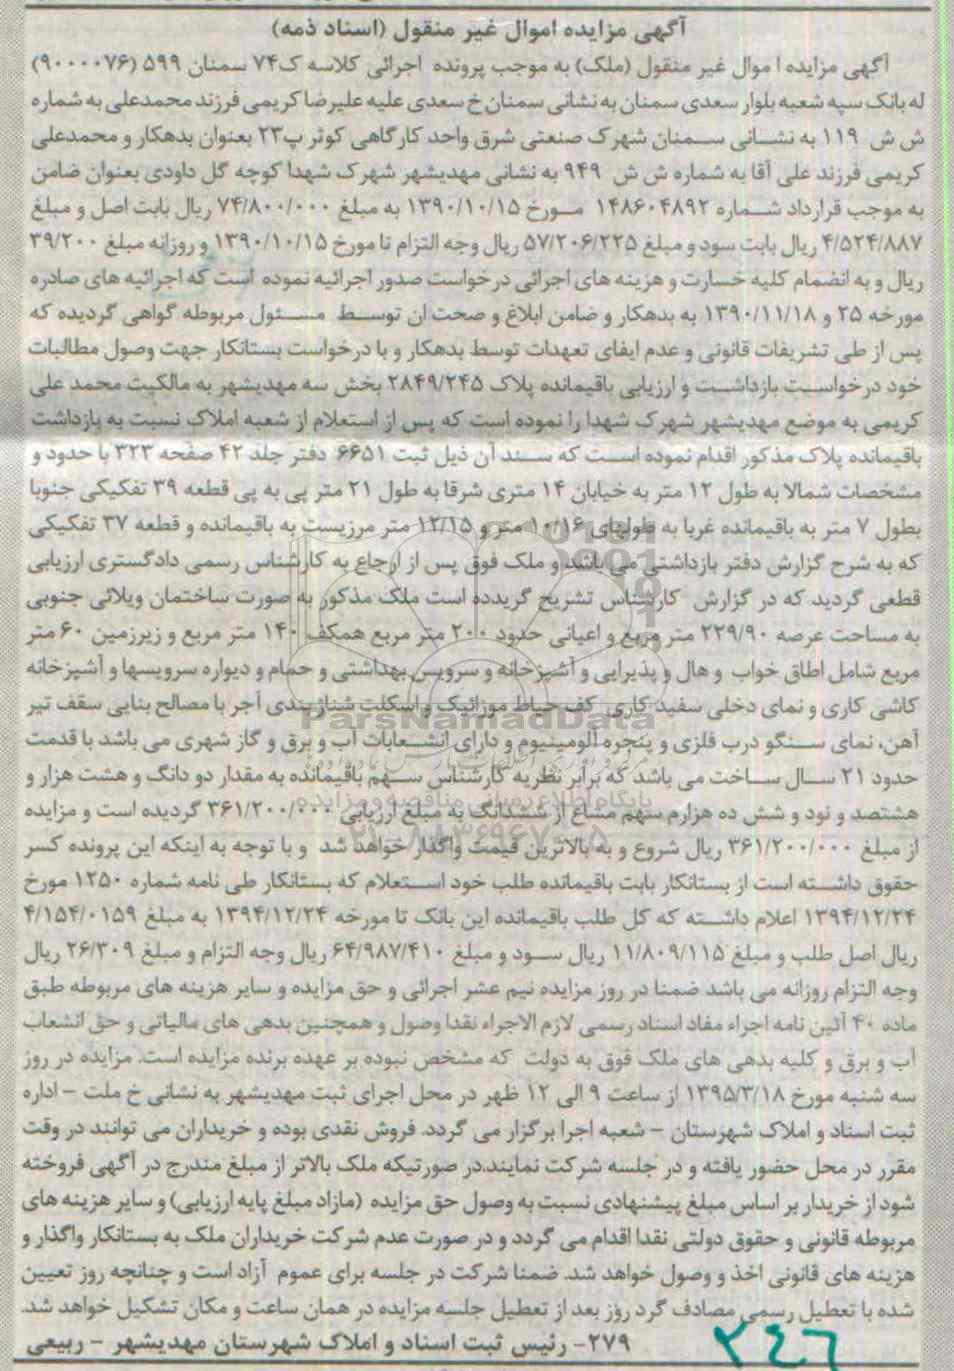 آگهی مزایده اموال غیر منقول (اسناد ذمه)
آگهی مزایده اموال غیر منقول (ملک) به موجب پرونده اجرائی کلاسه ک۷۴ سمنان ۵۹۹ (۹۰۰۰۰۷۶)
له بانک سپه شعبه بلوار سعدی سمنان به نشانی سمنان خ سعدی علیه علیرضا کریمی فرزند محمدعلی به شماره
ش ش ۱۱۹ به نشانی سمنان شهرک صنعتی شرق واحد کارگاهی کوثر پ۲۳ بعنوان بدهکار و محمدعلی
کریمی فرزند علی آقا به شماره ش ش ۹۴۹ به نشانی مهدیشهر شهرک شهدا کوچه گل داودی بعنوان ضامن
به موجب قرارداد شماره ۱۴۸۶۰۴۸۹۲ مورخ ۱۳۹۰/۱۰/۱۵ به مبلغ ۷۴/۸۰۰/۰۰۰ ریال بابت اصل و مبلغ
۴/۵۲۴/۸۸۷ ریال بابت سود و مبلغ ۵۷/۲۰۶/۲۲۵ ریال وجه التزام تا مورخ ۱۳۹۰/۱۰/۱۵ و روزانه مبلغ ۳۹/۲۰۰
ریال و به انضمام کلیه خسارت و هزینه های اجرائی درخواست صدور اجرائیه نموده است که اجرائیه های صادره
مورخه ۲۵ و ۱۳۹۰/۱۱/۱۸ به بدهکار و ضامن ابلاغ و صحت ان توسط مسئول مربوطه گواهی گردیده که
پس از طی تشریفات قانونی و عدم ایفای تعهدات توسط بدهکار و با درخواست بستانکار جهت وصول مطالبات
خود درخواست بازداشت و ارزیابی باقیمانده پلاک ۲۸۴۹/۲۴۵ بخش سه مهدیشهر به مالکیت محمد علی
کریمی به موضع مهدیشهر شهرک شهدا را نموده است که پس از استعلام از شعبه املاک نسبت به بازداشت
باقیمانده پلاک مذکور اقدام نموده است که سند آن ذیل ثبت ۶۶۵۱ دفتر جلد ۴۲ صفحه ۳۲۳ با حدود و
مشخصات شمالا به طول ۱۲ متر به خیابان ۱۴ متری شرقا به طول ۲۱ متر پی به پی قطعه ۳۹ تفکیکی جنوبا
بطول ۷ متر به باقیمانده غربا به طولهای ۱۰/۱۶ متر و ۱۲/۱۵ متر مرزیست به باقیمانده و قطعه ۳۷ تفکیکی
که به شرح گزارش دفتر بازداشتی می باشد و ملک فوق پس از ارجاع به کارشناس رسمی دادگستری ارزیابی
قطعی گردید که در گزارش کارشناس تشریح گریدده است ملک مذکور به صورت ساختمان ویلائی جنوبی
به مساحت عرصه ۲۲۹/۹۰ متر مربع و اعیانی حدود ۲۰۰ متر مربع همکف ۱۴۰ متر مربع و زیرزمین ۶۰ متر
مربع شامل اطاق خواب و هال و پذیرایی و آشپزخانه و سرویس بهداشتی و حمام و دیواره سرویسها و آشپزخانه
کاشی کاری و نمای دخلی سفید کاری کف حیاط موزائیک و اسکلت شناژ بندی آجر با مصالح بنایی سقف تیر
آهن، نمای سنگو درب فلزی و پنجره آلومینیوم و دارای انشعابات آب و برق و گاز شهری می باشد با قدمت
حدود ۲۱ سال ساخت می باشد که برابر نظریه کارشناس سهم باقیمانده به مقدار دو دانگ و هشت هزار و
هشتصد و نود و شش ده هزارم سهم مشاع از ششدانگ به مبلغ ارزیابی ۳۶۱/۲۰۰/۰۰۰ گردیده است و مزایده
از مبلغ ۳۶۱/۲۰۰/۰۰۰ ریال شروع و به بالاترین قیمت واگذار خواهد شد و با توجه به اینکه این پرونده کسر
حقوق داشته است از بستانکار بابت باقیمانده طلب خود استعلام که بستانکار طی نامه شماره ۱۲۵۰ مورخ
۱۳۹۴/۱۲/۲۴ اعلام داشته که کل طلب باقیمانده این بانک تا مورخه ۱۳۹۴/۱۲/۲۴ به مبلغ ۴/۱۵۴/۰۱۵۹
ریال اصل طلب و مبلغ ۱۱/۸۰۹/۱۱۵ ریال سود و مبلغ ۶۴/۹۸۷/۴۱۰ ریال وجه التزام و مبلغ ۲۶/۳۰۹ ریال
وجه التزام روزانه می باشد ضمنا در روز مزایده نیم عشر اجرائی و حق مزایده و سایر هزینه های مربوطه طبق
ماده ۴۰ آئین نامه اجراء مفاد اسناد رسمی لازم الاجراء نقدا وصول و همچنین بدهی های مالیاتی و حق انشعاب
آب و برق و کلیه بدهی های ملک فوق به دولت که مشخص نبوده بر عهده برنده مزایده است. مزایده در روز
سه شنبه مورخ ۱۳۹۵/۳/۱۸ از ساعت ۹ الی ۱۲ ظهر در محل اجرای ثبت مهدیشهر به نشانی خ ملت – اداره
ثبت اسناد و املاک شهرستان – شعبه اجرا برگزار می گردد. فروش نقدی بوده و خریداران می توانند در وقت
مقرر در محل حضور یافته و در جلسه شرکت نمایند.در صورتیکه ملک بالاتر از مبلغ مندرج در آگهی فروخته
شود از خریدار بر اساس مبلغ پیشنهادی نسبت به وصول حق مزایده (مازاد مبلغ پایه ارزیابی) و سایر هزینه های
مربوطه قانونی و حقوق دولتی نقدا اقدام می گردد و در صورت عدم شرکت خریداران ملک به بستانکار واگذار و
هزینه های قانونی اخذ و وصول خواهد شد. ضمنا شرکت در جلسه برای عموم آزاد است و چنانچه روز تعیین
شده با تعطیل رسمی مصادف گرد روز بعد از تعطیل جلسه مزایده در همان ساعت و مکان تشکیل خواهد شد.
۲۷۹- رئیس ثبت اسناد و املاک شهرستان مهدیشهر – ربیعی
ParsNamadData
پایگاه اطلاع رسانی مناقصه و مزایده